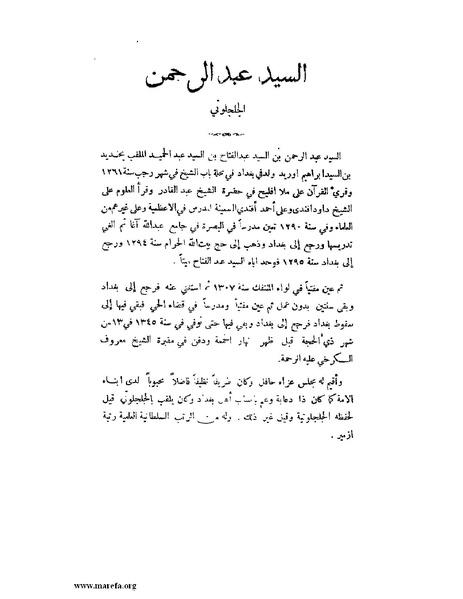 السيد عبد الرحمن
الجلجلوتي
السيد عبد الرحمن بن السيد عبدالفتاح بن السيد عبد الحميد الملقب
بن السيد ابراهيم ولد في بغداد في محلة باب الشيخ في شهر رجب سنة ١٢٦١
وقرئ القرآن على ملا افليح في حضرة الشيخ عبد القادر وقرأ العلوم على
الشيخ داود افندي وعلى أحمد أفندي السمينة المدرس في الاعظمية وعلى غيرهم من
العلماء وفي سنة ١٢٩٠ تعين مدرساً في البصرة في جامع عبدالله آغا ثم الغي
تدريسها ورجع إلى بغداد وذهب إلى حج بيت الله الحرام سنة ١٢٩٤ ورجع
إلى بغداد سنة ١٢٩٥ فوجد اباه السيد عبد الفتاح ميتاً .
ثم عين مفتياً في لواء المنتفك سنة ١٣٠٧ ثم استغني عنه فرجع إلى بغداد
وبقى سنتين بدون عمل ثم عين مفتياً ومدرساً في قضاء الحي فبقي فيها إلى
سقوط بغداد فرجع إلى بغداد وبقى فيها حتى توفي في سنة ١٣٤٥ في ١٣ من
شهر ذي الحجة قبل ظهر نهار الجمعة ودفن في مقبرة الشيخ معروف
الكرخي عليه الرحمة .
وأقيم له مجلس عزاء حافل وكان ظريفاً نظيفاً فاضلاً محبوباً لدى أبناء
الامة كما كان ذا دعابة وعلم بانساب أهل بغداد وكان يلقب بالجلجلوتي قيل
لحفظه الجلجلوتية وقيل غير ذلك . وله من الرتب السلطانية العلمية رتبة
ازمير .
www.marefa.org